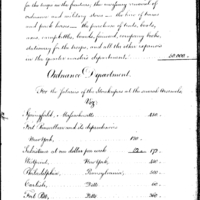 for the troops on the frontiers, the necessary removal of
ordnance and military stores — the hire of teams
and pack horses — the purchase of tents, boats,
axes, camp kettles, boards, firewood, company books,
stationary for the troops, and all the other expenses
in the quarter master's department. 50,000.
Ordnance Department.
For the Salaries of the Storekeepers at the several Arsenals,
Viz:
Springfield, Massachusetts 480.
Fort Rensselaer and its dependencies
New York,
Salvatores at one dollar per week 172.
Westpoint, New York, 480
Philadelphia, Pennsylvania, 500
Carlisle, Ditto 60.
Fort Pitt, Ditto 360.